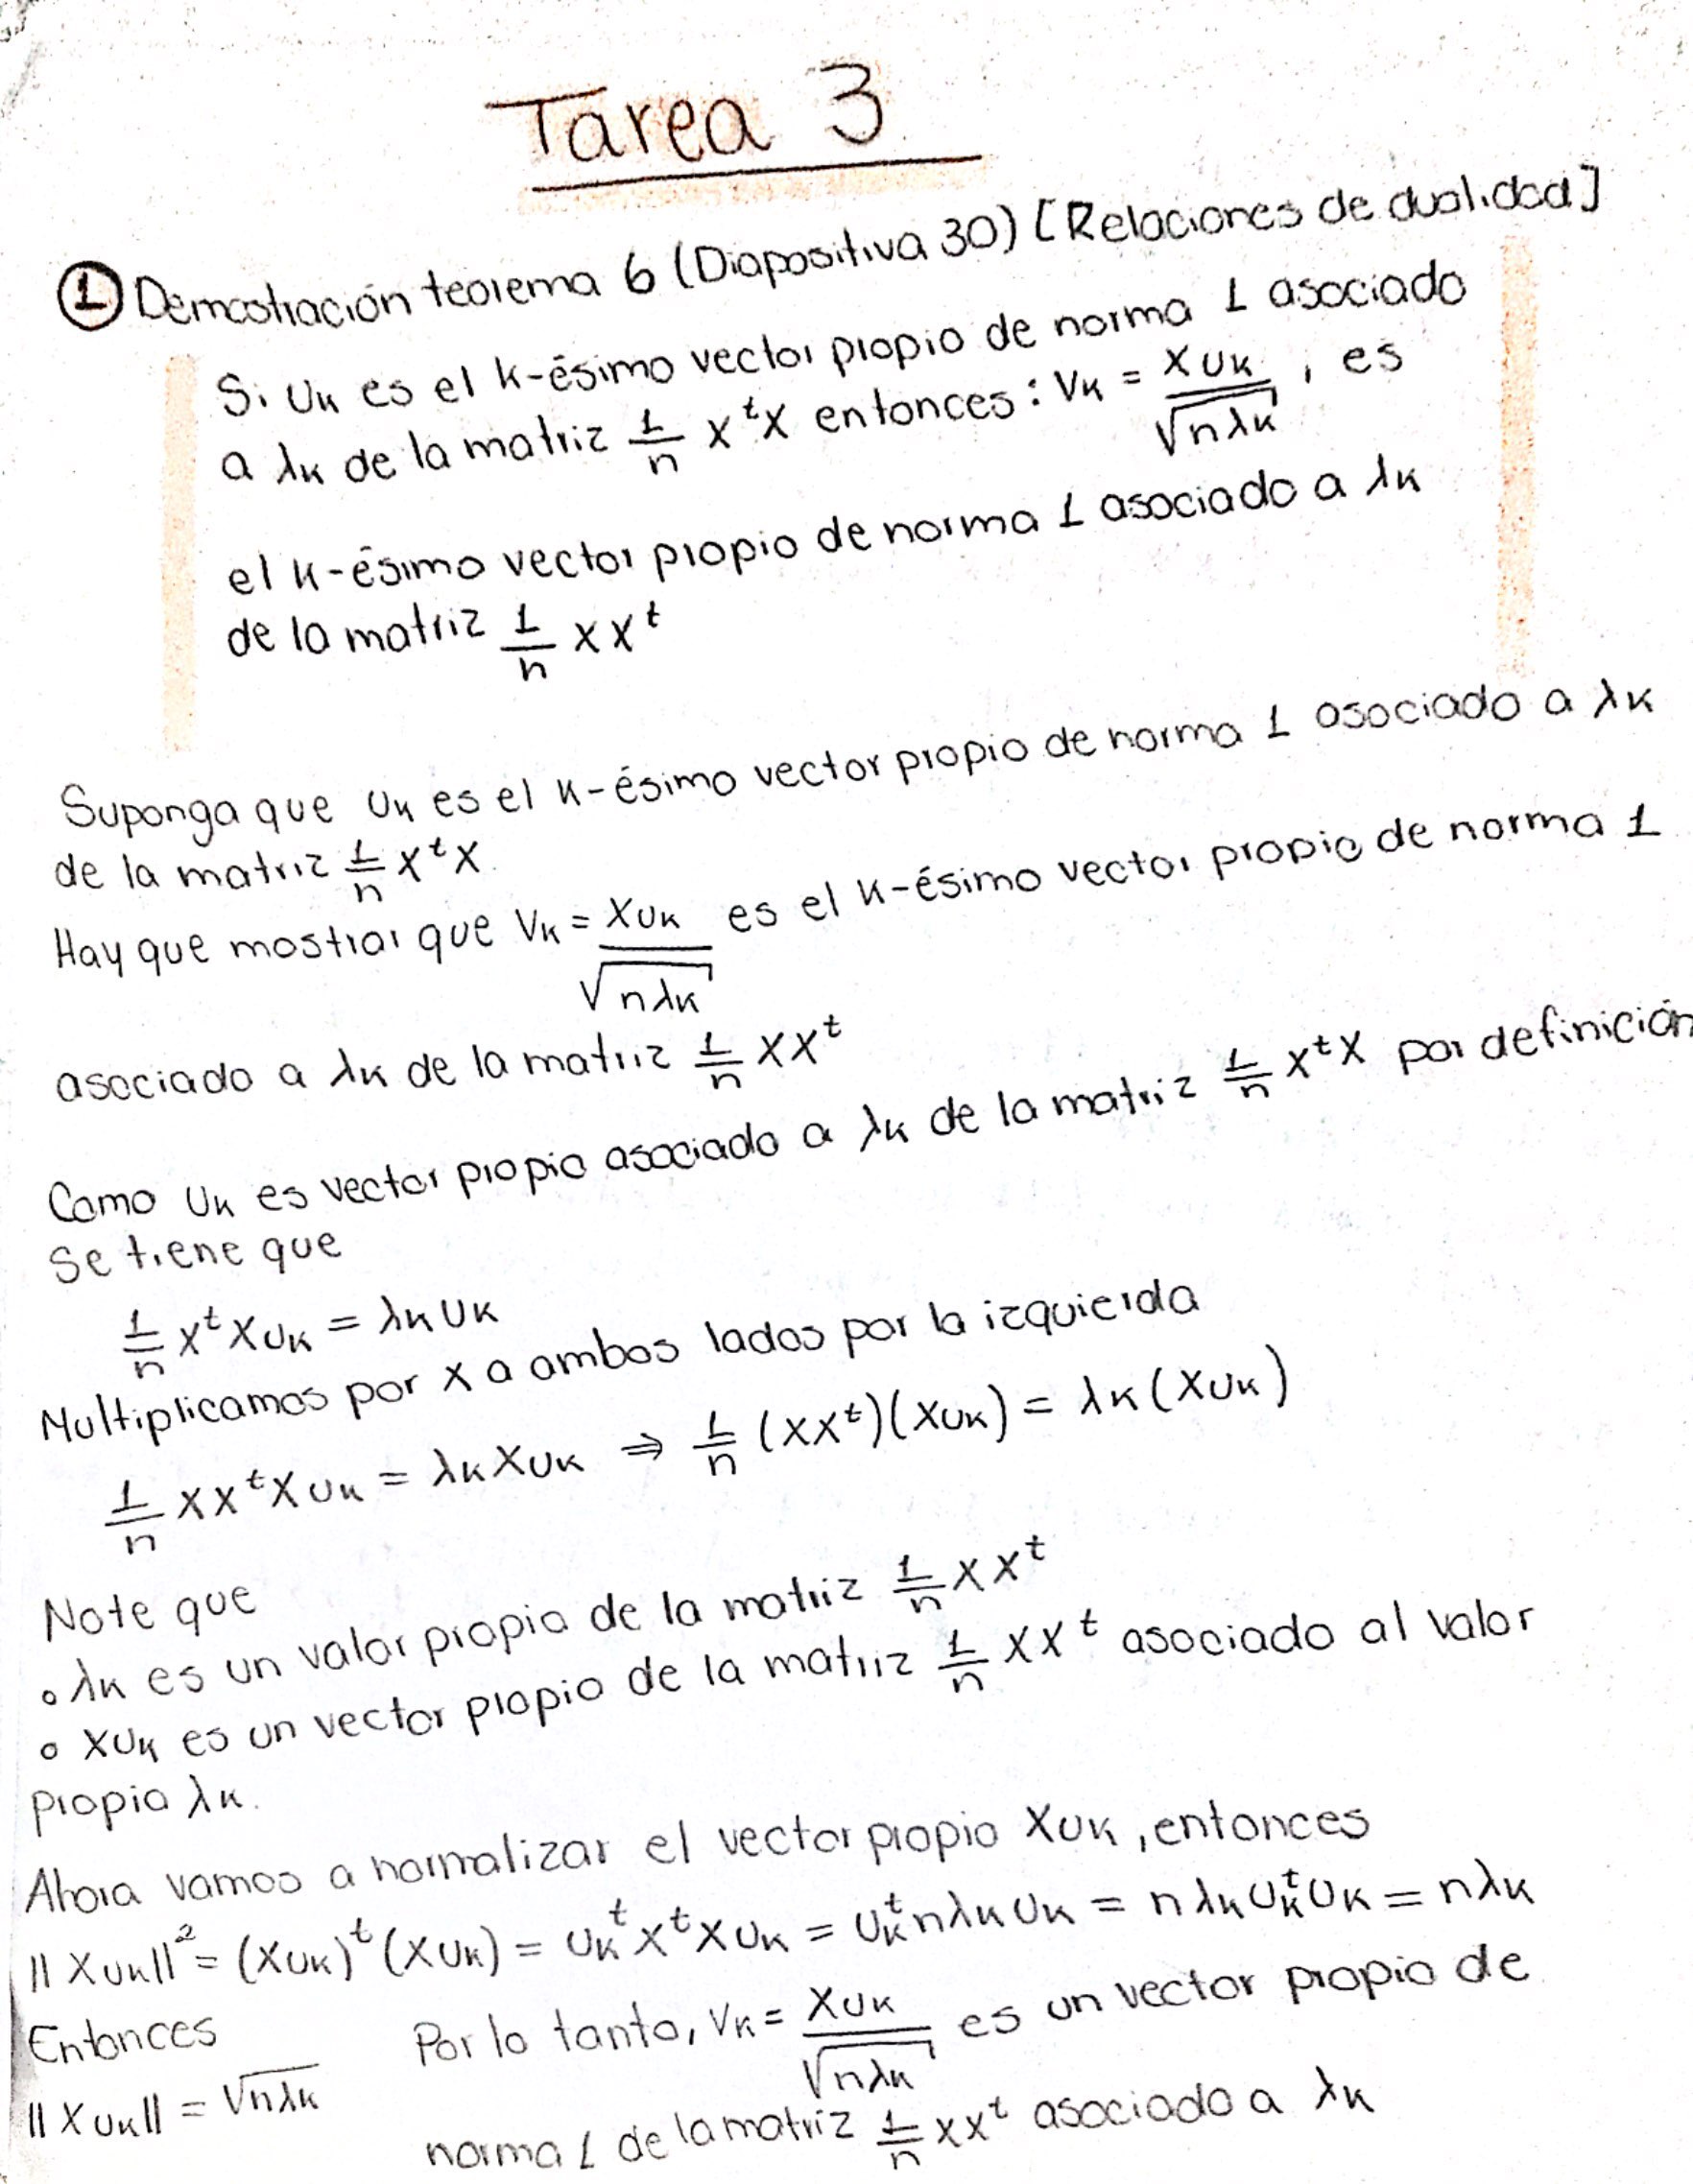 Tarea 3
① Demostración teorema 6 (Diapositiva 30) [Relaciones de dualidad]
Si Uk es el k-ésimo vector propio de norma 1 asociado
a λk de la matriz 1/n X^t X entonces: Vk = XUk/√(nλk), es
el k-ésimo vector propio de norma 1 asociado a λk
de la matriz 1/n XX^t
Suponga que Uk es el k-ésimo vector propio de norma 1 asociado a λk
de la matriz 1/n X^t X.
Hay que mostrar que Vk = XUk/√(nλk) es el k-ésimo vector propio de norma 1
asociado a λk de la matriz 1/n XX^t
Como Uk es vector propio asociado a λk de la matriz 1/n X^t X por definición
se tiene que
1/n X^t XUk = λk Uk
Multiplicamos por X a ambos lados por la izquierda
1/n XX^t XUk = λk XUk ⇒ 1/n (XX^t)(XUk) = λk (XUk)
Note que
∘ λk es un valor propio de la matriz 1/n XX^t
∘ XUk es un vector propio de la matriz 1/n XX^t asociado al valor
propio λk.
Ahora vamos a normalizar el vector propio XUk, entonces
||XUk||² = (XUk)^t (XUk) = Uk^t X^t XUk = Uk^t nλk Uk = nλk Uk^t Uk = nλk
Entonces
||XUk|| = √(nλk)
Por lo tanto, Vk = XUk/√(nλk) es un vector propio de
norma 1 de la matriz 1/n XX^t asociado a λk